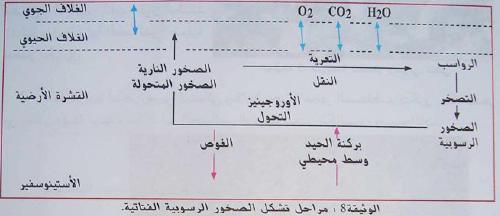 الغلاف الجوي
O2 CO2 H2O
الغلاف الحيوي
التعرية
الرواسب
الصخور النارية
النقل
الصخور المتحولة
القشرة الأرضية
التصخر
الأوروجينيز
التحول
الصخور
الرسوبية
الغوص
بركنة الحيد
وسط محيطي
الأستينوسفير
الوثيقة8 : مراحل تشكل الصخور الرسوبية الفتاتية.